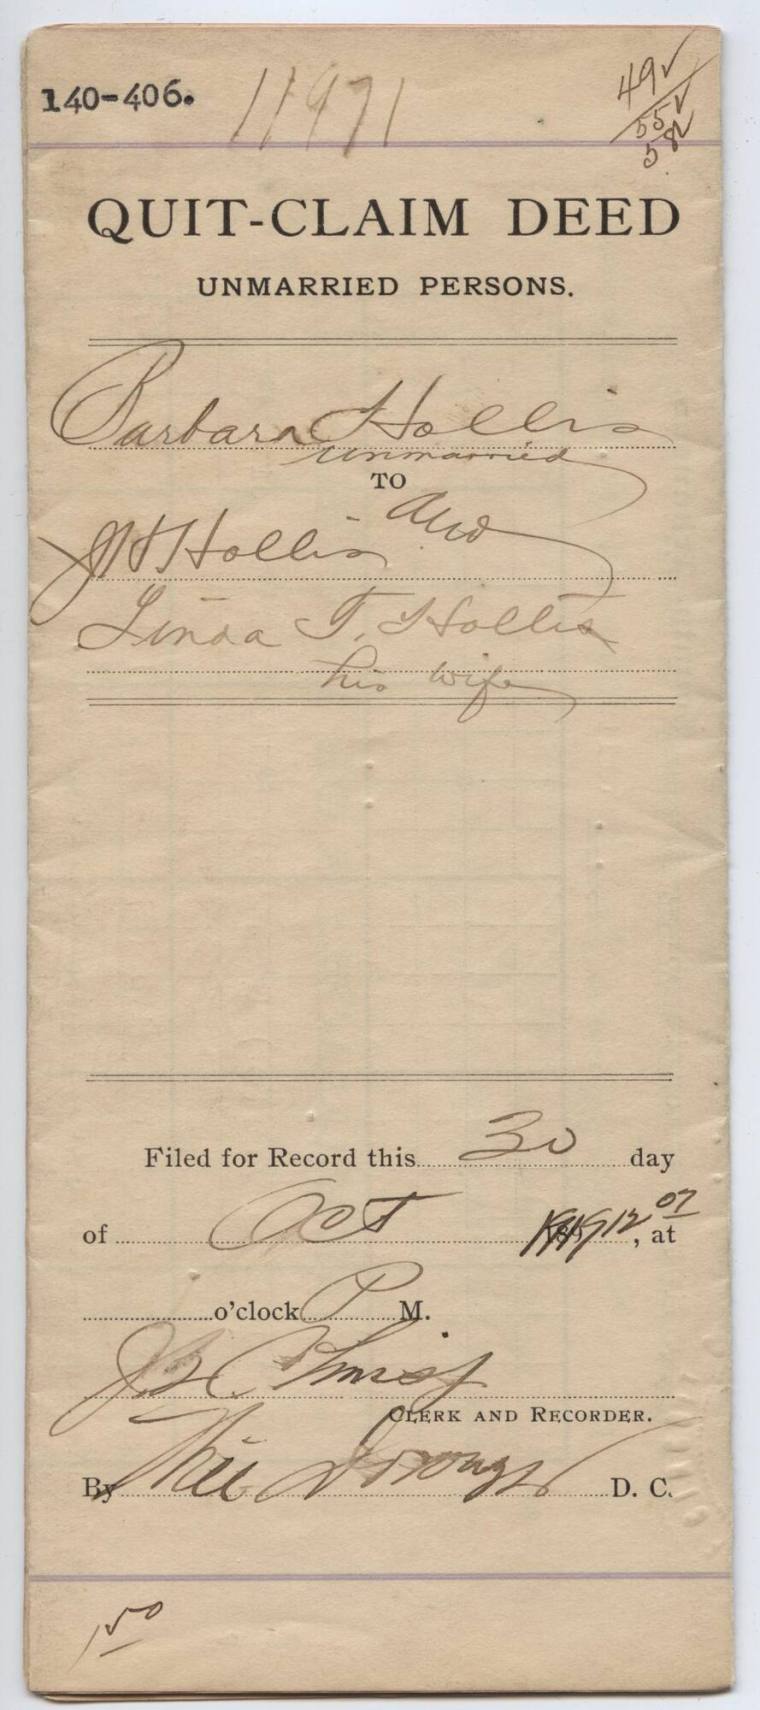 140-406. 11971
49✓
55✓
58✓
QUIT-CLAIM DEED
UNMARRIED PERSONS.
Barbara Hollis
unmarried
TO
J H Hollis and
Linda T. Hollis
his wife
Filed for Record this 30 day
of Oct 1912, at
07
o'clock P M.
CLERK AND RECORDER.
By D. C.
1 50